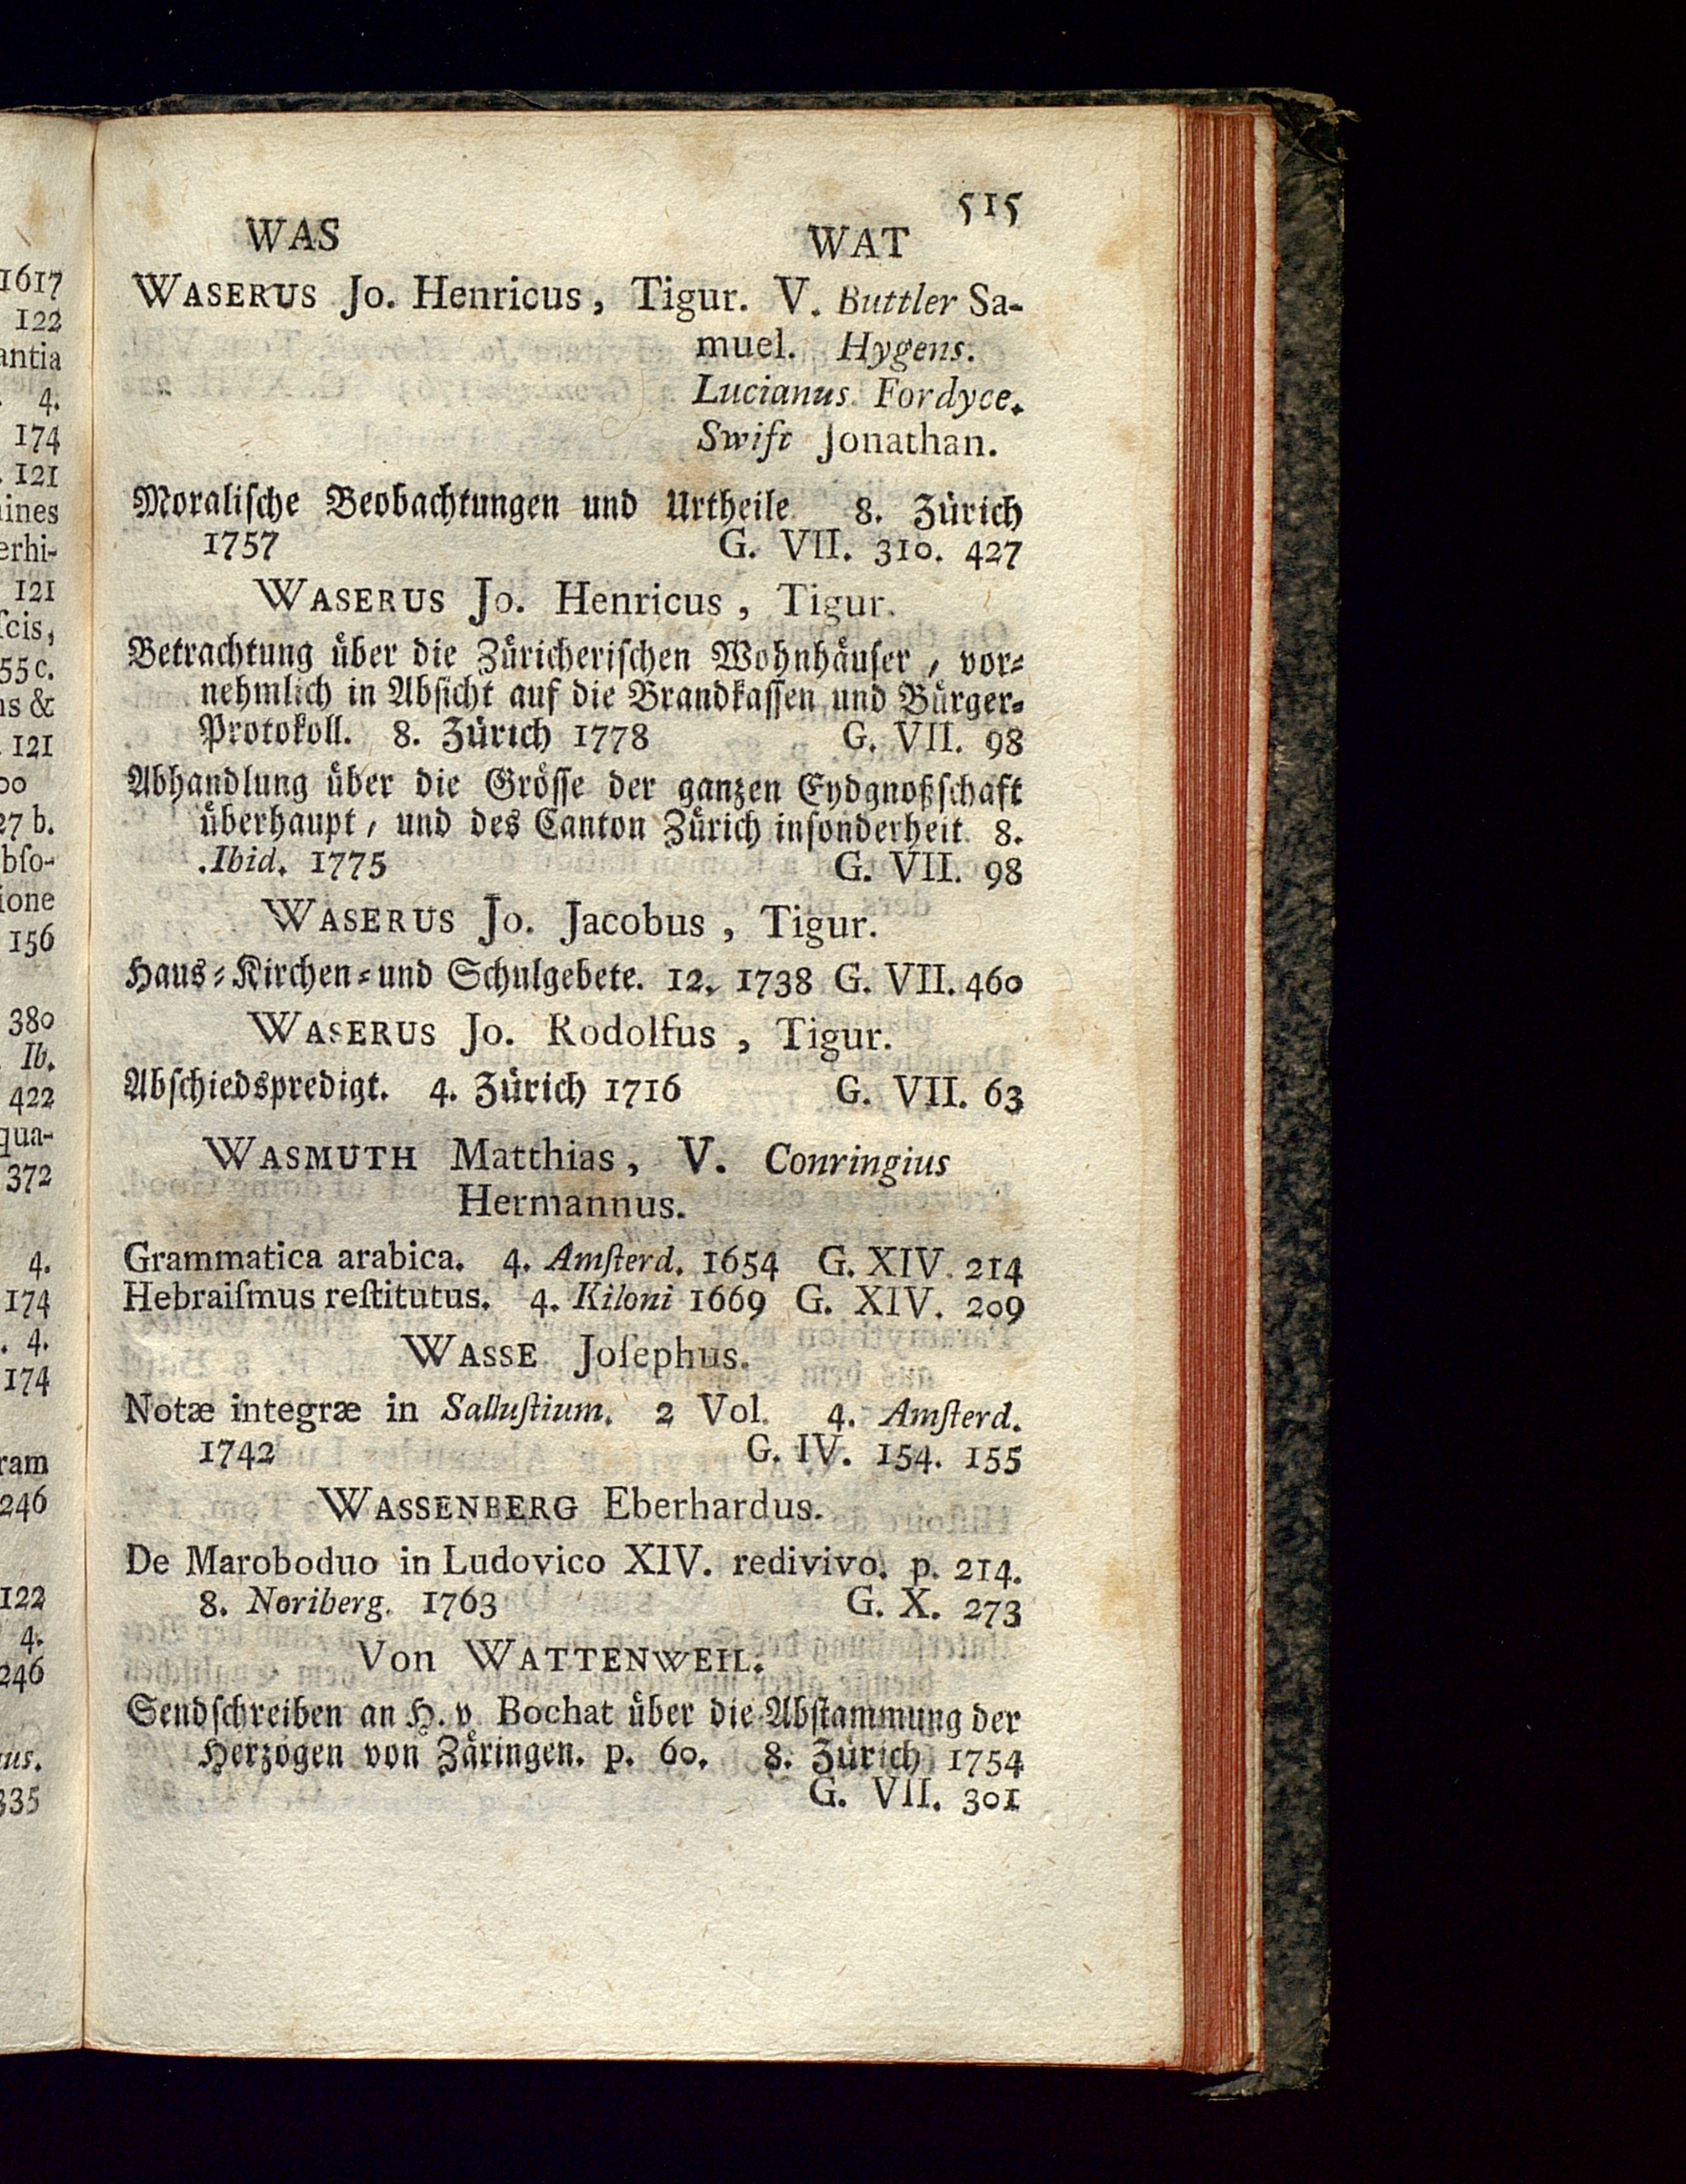 515
WAS WAT
WASERUS Jo. Henricus, Tigur. V. Buttler Sa-
muel. Hygens.
Lucianus. Fordyce.
Swift Jonathan.
Moraliſche Beobachtungen und Urtheile 8. Zürich
1757 G. VII. 310. 427
WASERUS Jo. Henricus, Tigur.
Betrachtung über die Züricheriſchen Wohnhäuſer, vor-
nehmlich in Abſicht auf die Brandkaſſen und Bürger-
Protokoll. 8. Zürich 1778 G. VII. 98
Abhandlung über die Gröſſe der ganzen Eydgnoßſchaft
überhaupt, und des Canton Zürich inſonderheit. 8.
Ibid. 1775 G. VII. 98
WASERUS Jo. Jacobus, Tigur.
Haus-Kirchen-und Schulgebete. 12. 1738 G. VII. 460
WASERUS Jo. Rodolfus, Tigur.
Abſchiedspredigt. 4. Zürich 1716 G. VII. 63
WASMUTH Matthias, V. Conringius
Hermannus.
Grammatica arabica. 4. Amſterd. 1654 G. XIV. 214
Hebraiſmus reſtitutus. 4. Kiloni 1669 G. XIV. 209
WASSE Joſephus.
Notæ integræ in Salluſtium. 2 Vol. 4. Amſterd.
1742 G. IV. 154. 155
WASSENBERG Eberhardus.
De Maroboduo in Ludovico XIV. redivivo. p. 214.
8. Noriberg. 1763 G. X. 273
Von WATTENWEIL.
Sendſchreiben an H. v. Bochat über die Abſtammung der
Herzogen von Zäringen. p. 60. 8. Zürich 1754
G. VII. 301
1617
122
antia
4.
174
121
ines
erhi-
121
ſcis,
55 c.
ns &
121
00
27 b.
bſo-
ione
156
380
Ib.
422
qua-
372
4.
174
4.
174
ram
246
122
4.
246
us.
335